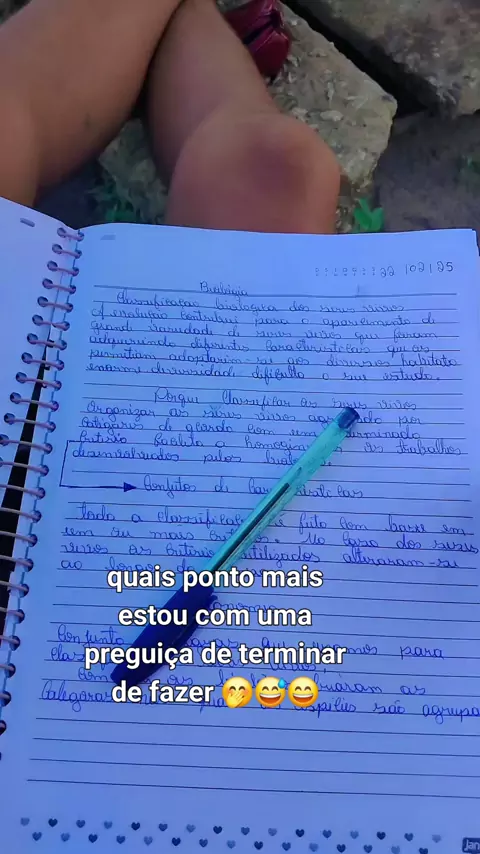 22/02/25
Biologia
Classificação biologica dos seres vivos
A evolução contribui para o aparecimento de
grande variedade de seres vivos que foram
adquirindo diferentes características que os
permitam adaptarim-se aos diversos habitats
enorme diversidade dificulta o seu estudo.
Porque classificar os seres vivos
Organizar os seres vivos por
categorias de acordo com um determinado
critério facilita a os trabalhos
desenvolvidos pelos
Conjutos de características
Toda a classificação é feita com base em
um ou mais No caso dos seres
vivos os critérios utilizados alteraram-se
ao longo do
quais ponto mais
estou com uma
preguiça de terminar
de fazer 🤭😅😄
Conjunto que usamos para
Com os as
categoras espécies são agrupa
Jan